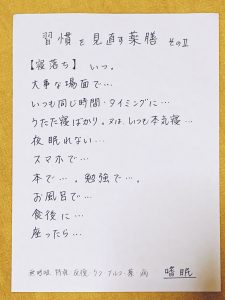 習慣を見直す薬膳 その五
【寝落ち】 いつ。
大事な場面で…
いつも同じ時間・タイミングに…
うたた寝ばかり。又は、いつも本気寝…
夜眠れない…
スマホで…
本で…。勉強で…。
お風呂で…
食後に…
座ったら…
嗜眠